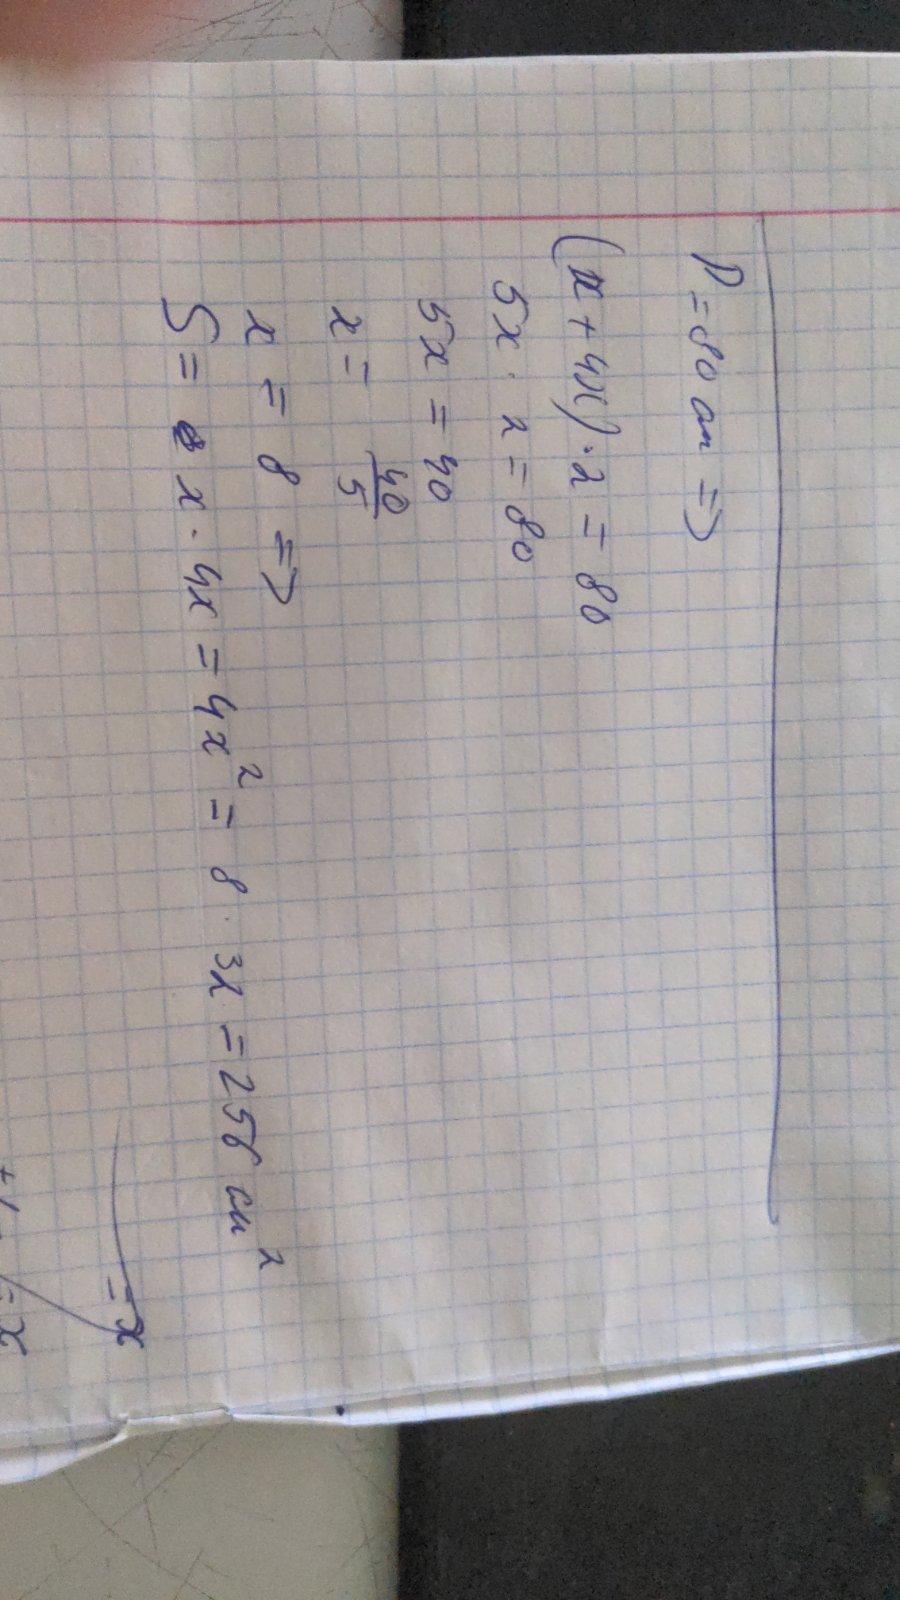 P = 80 см =>
(x + 4x) · 2 = 80
5x · 2 = 80
5x = 40
x = 40/5
x = 8 =>
S = x · 4x = 4x² = 8 · 32 = 256 см²
= x
= x